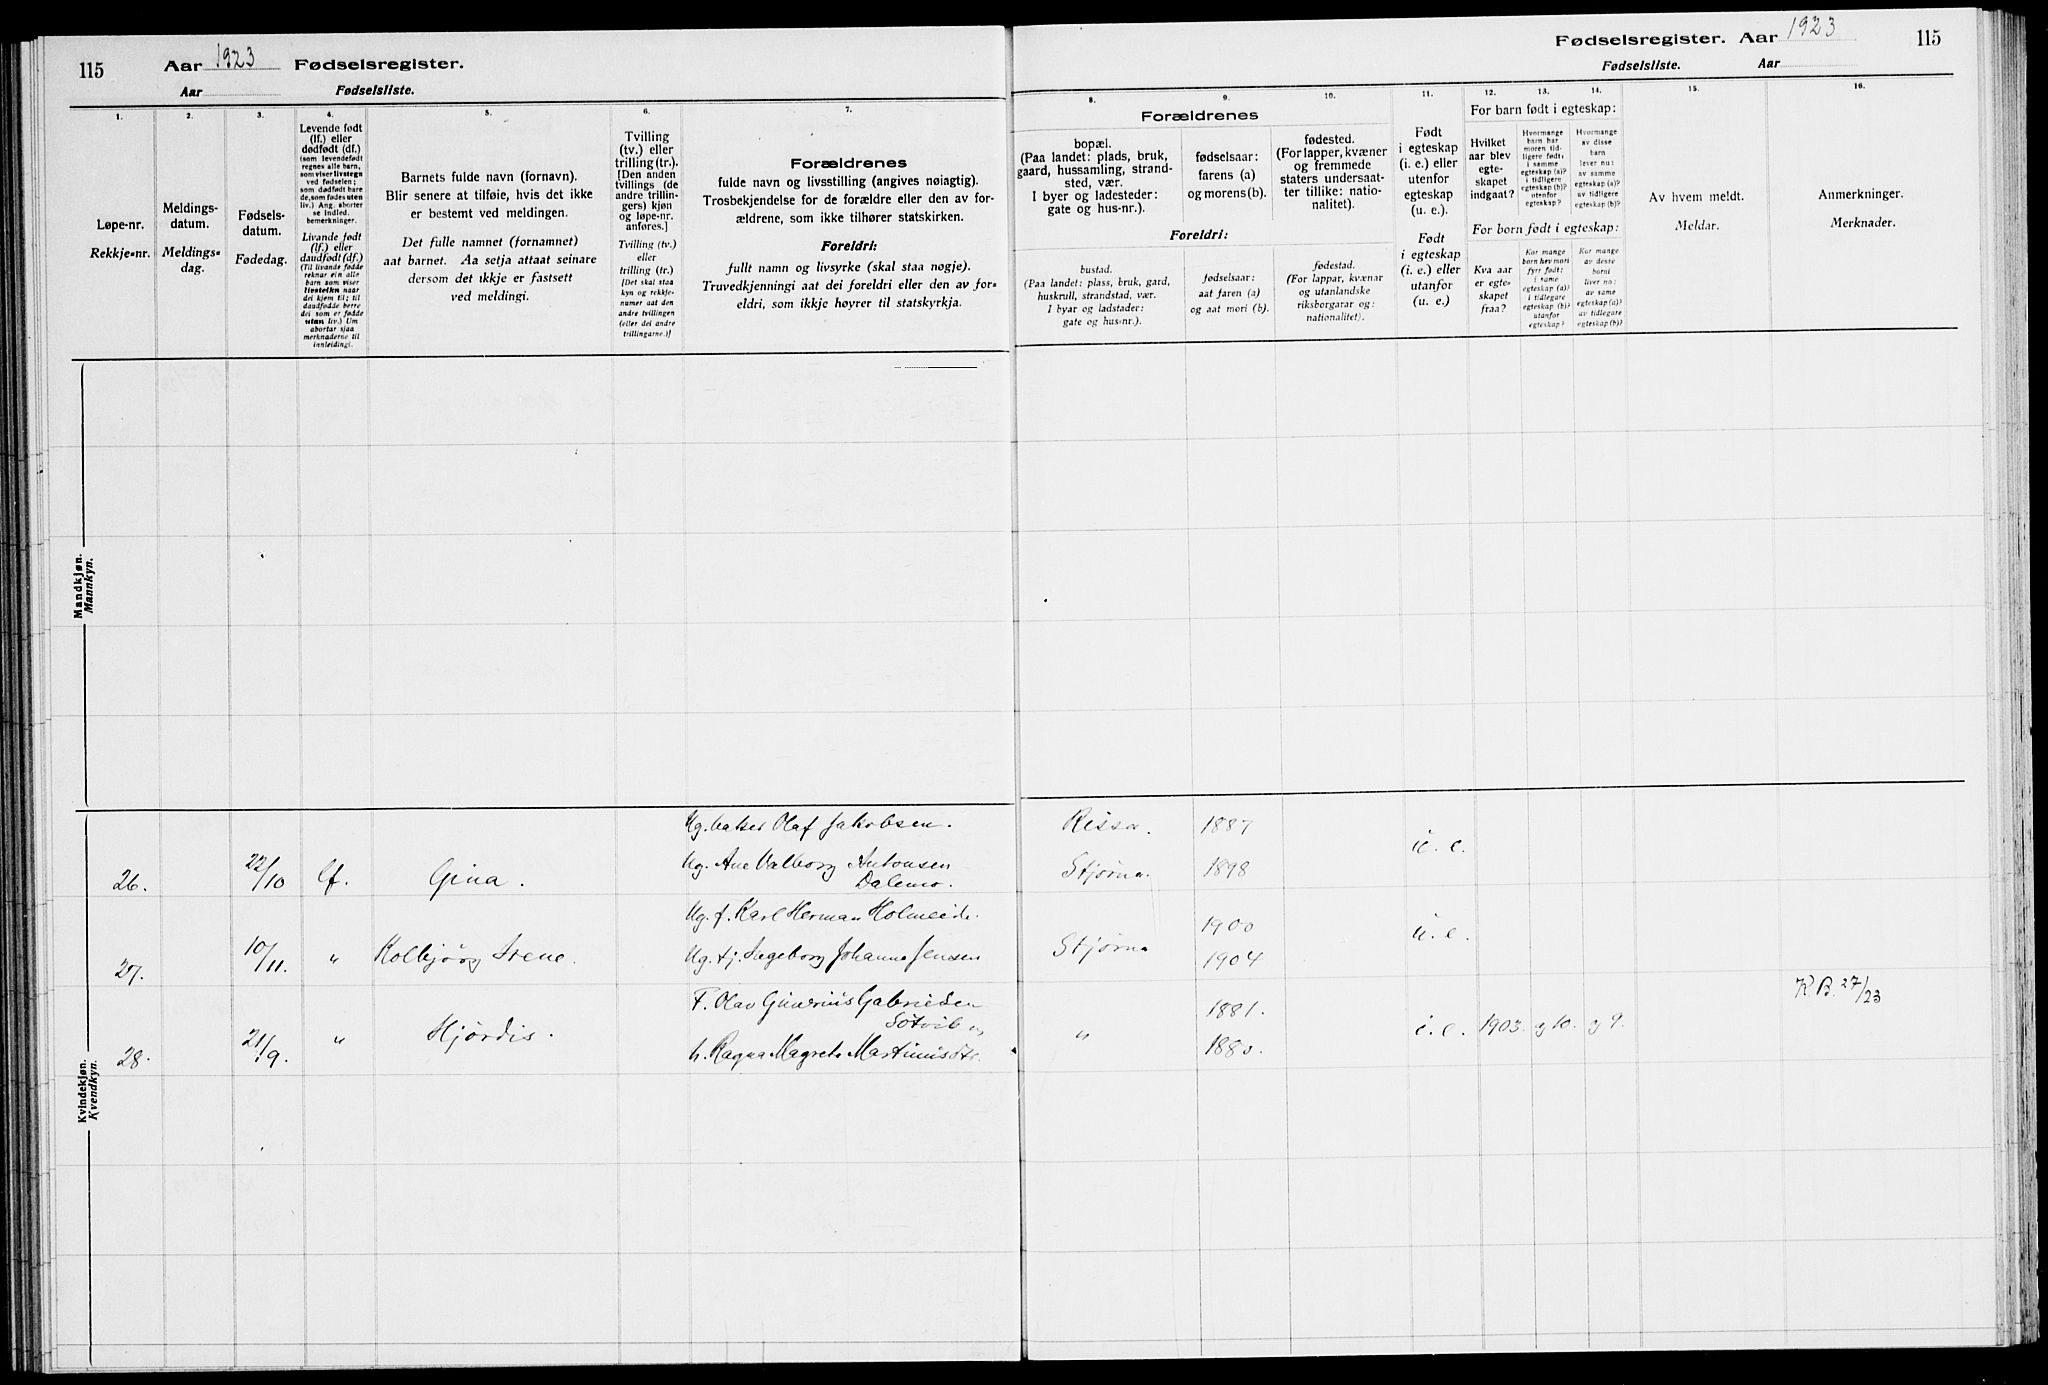 115
Aar 1923 Fødselsregister.
Aar Fødselsliste.
Fødselsregister. Aar 1923
115
Fødselsliste. Aar
1.
Løpe-nr.
Rekkje-nr.
2.
Meldings-
datum.
Meldings-
dag.
3.
Fødsels-
datum.
Fødedag.
4.
Levende født
(lf.) eller
dødfødt (df.)
(som levendefødt
regnes alle barn,
som viser livstegn
ved fødselen;
som dødfødt bare
de, som fødes uten
liv.) Ang. aborter
se indled.
bemerkninger.
Livande født
(lf.) eller
daudfødt (df.)
(Til livande fødde
reknar ein alle
barn som viser
livsteikn naar
dei kjem til; til
daudfødde berre
dei som er fødde
utan liv.) Um
abortar sjaa
merknaderne til
innleidingi.
5.
Barnets fulde navn (fornavn).
Blir senere at tilføie, hvis det ikke
er bestemt ved meldingen.
Det fulle namnet (fornamnet)
aat barnet. Aa setja attaat seinare
dersom det ikkje er fastsett
ved meldingi.
6.
Tvilling
(tv.) eller
trilling (tr.).
[Den anden
tvillings (de
andre trillin-
gers) kjøn
og løpe-nr.
anføres.]
Tvilling (tv.)
eller
trilling (tr.)
[Det skal staa
kyn og rekkje-
numer aat den
andre tvillingen
(eller dei andre
trillingarne.)]
7.
Forældrenes
fulde navn og livsstilling (angives nøiagtig).
Trosbekjendelse for de forældre eller den av for-
ældrene, som ikke tilhører statskirken.
Foreldri:
fullt namn og livsyrke (skal staa nøgje).
Truvedkjenningi aat dei foreldri eller den av for-
eldri, som ikkje høyrer til statskyrkja.
Forældrenes
8.
bopæl.
(Paa landet: plads, bruk,
gaard, hussamling, strand-
sted, vær.
I byer og ladesteder:
gate og hus-nr.).
9.
fødselsaar:
farens (a)
og morens (b).
10.
fødested.
(For lapper, kvæner
og fremmede
staters undersaat-
ter tillike: natio-
nalitet).
Foreldri:
bustad.
(Paa landet: plass, bruk, gard,
huskrull, strandstad, vær.
I byar og ladstader:
gate og hus-nr.).
fødselsaar:
aat faren (a)
og aat mori (b).
fødestad.
(For lappar, kvænar
og utanlandske
riksborgarar og:
nationalitet).
11.
Født
i egteskap
(i. e.) eller
utenfor
egteskap
(u. e.).
Født
i egteskap
(i. e.) eller
utanfor
(u. e.)
For barn født i egteskap:
12.
Hvilket
aar blev
egte-
skapet
indgaat?
13.
Hvormange
barn har
moren tid-
ligere født:
i samme
egteskap (a)?
i tidligere
egteskap (b)?
utenfor
egteskap?
14.
Hvormange
av disse
barn
lever nu:
av samme
egteskap (a)?
av tidligere
egteskap (b)?
For born født i egteskap:
Kva aar
er egte-
skapet
fraa?
Kor mange
born hev mori
fyrr født:
i same
egteskap (a)?
i tidlegare
egteskap (b)?
utanfor
egteskap?
Kor mange
av desse
borni
liver no:
av same
egteskap (a)?
av tidlegare
egteskap (b)?
15.
Av hvem meldt.
Meldar.
16.
Anmerkninger.
Merknader.
Mandkjøn.
Mannkyn.
Kvindekjøn.
Kvendkyn.
Ug. Olaf Jakobsen. Rissa. 1887
i. e.
26. 22/10 lf. Gina. Ug. Ane Valborg Antonsen Stjørna. 1898
Dalemo.
Ug. f. Karl Herman Holmeide. 1900
u. e.
27. 10/11. " Kolbjørg Irene. Ug. tj. Ingeborg Johanne Jensen Stjørna 1904
F. Olav Gunerius Gabrielsen 1881.
K.B. 27/23
28. 21/9. " Hjørdis. " i. e. 1903. og 10. og 9.
h. Ragna Magrete Martinusdtr. 1880.